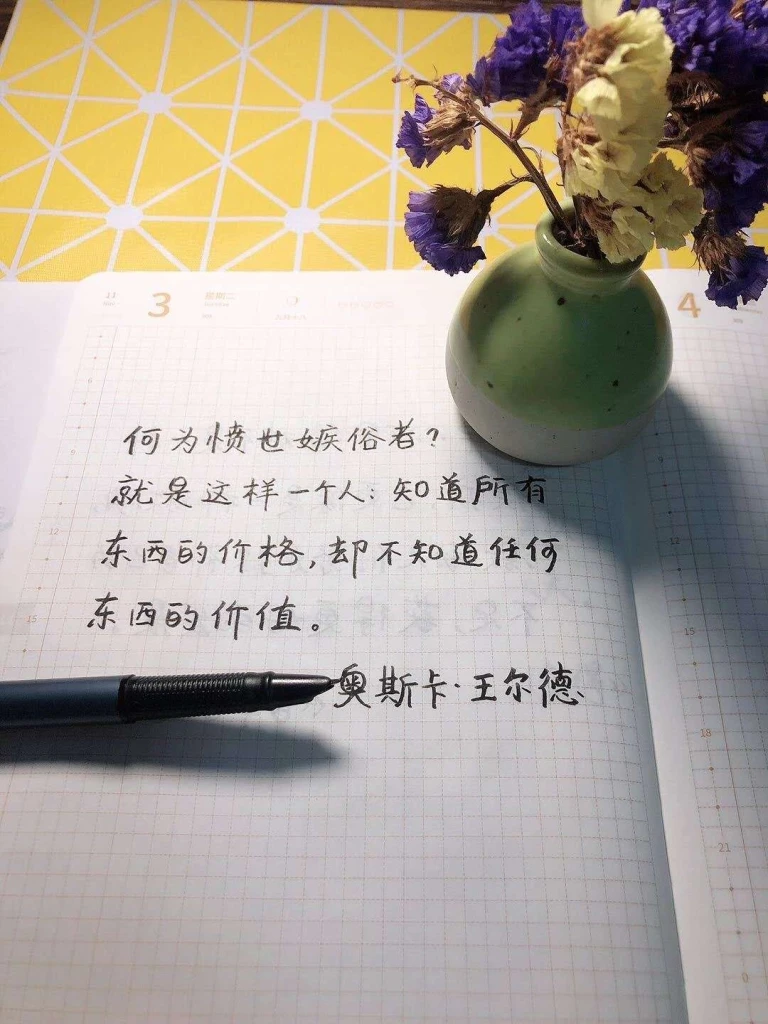 11
3
星期二
4
何为愤世嫉俗者?
就是这样一个人:知道所有
东西的价格,却不知道任何
东西的价值。
奥斯卡·王尔德
9
12
15
12
15
18
21